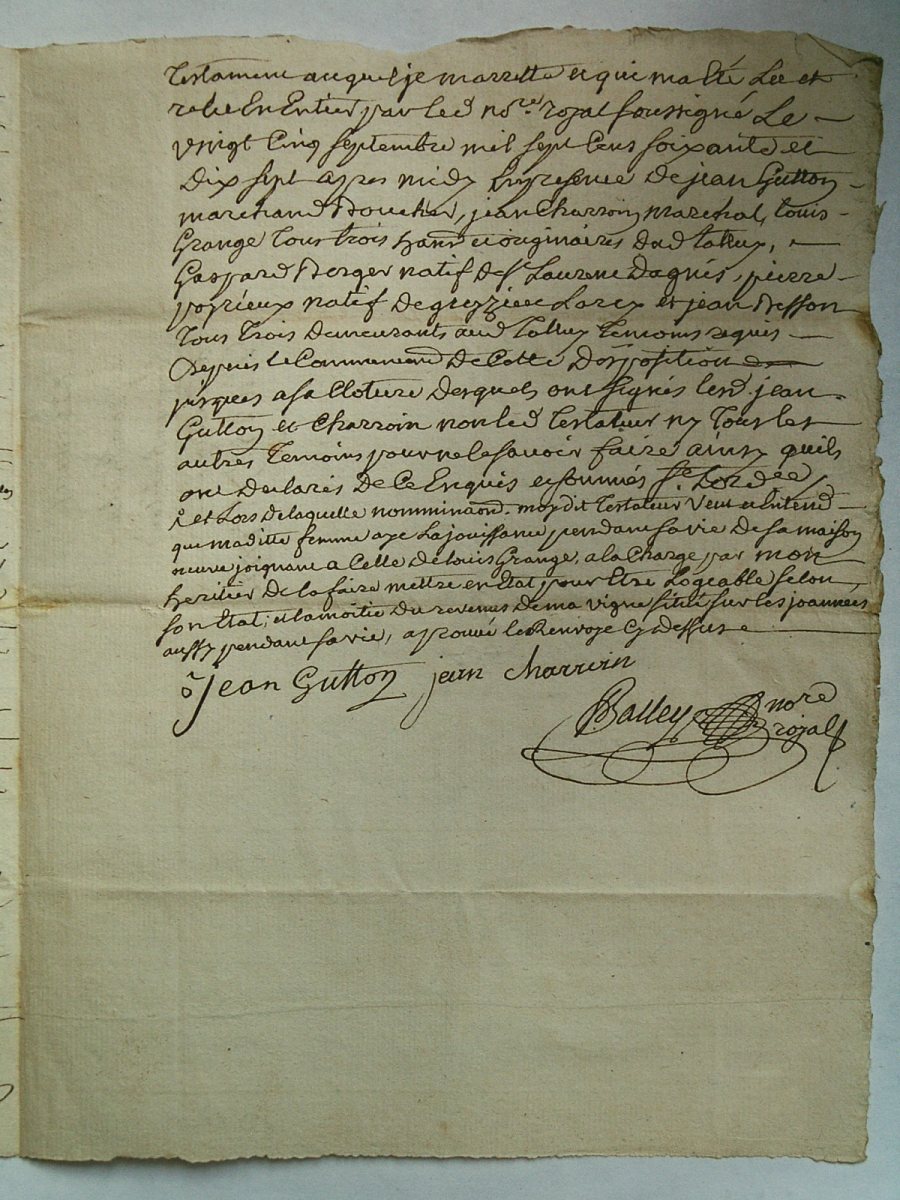 Testament auquel je marrette et qui ma été Lu et
relu En Entier par led no.re royal soussigné Le
vingt Cinq septembre mil sept Cens soixante et
Dix sept apres midy En presence de jean Gutton
marchand Boucher, jean Charroin marechal, Louis
Grange Tous trois hans et originaires dud Talluy,
Gaspard Berger natif de st Laurent Dagnis, pierre
natif de greyzieu Larex et jean Besson
Tous Trois demeurants aud Talluy Temoins requis
Depuis le Commencem.d De Cette Disposition
jusques a sa Cloture desquels ont signés lesd jean
Gutton et Charroin non led Testateur ny Tous les
autres Temoins pour ne le savoir faire ainsy quils
ont declarés de Ce Enquis et sommés
et Lors de laquelle moy dit Testateur Veut et Entend
que maditte femme aye La jouissance pendant sa vie De sa maison
neuve joignant a Celle de Louis Grange, a la Charge par mon
heritier de la faire mettre en état pour Etre Logeable selon
son Etat, et la moitié du revenus de ma vigne sitté sur les joannées
aussy pendant sa vie, aprouvé le Renvoye Cy dessus
Jean Gutton jean charroin
Balley no.re
royal